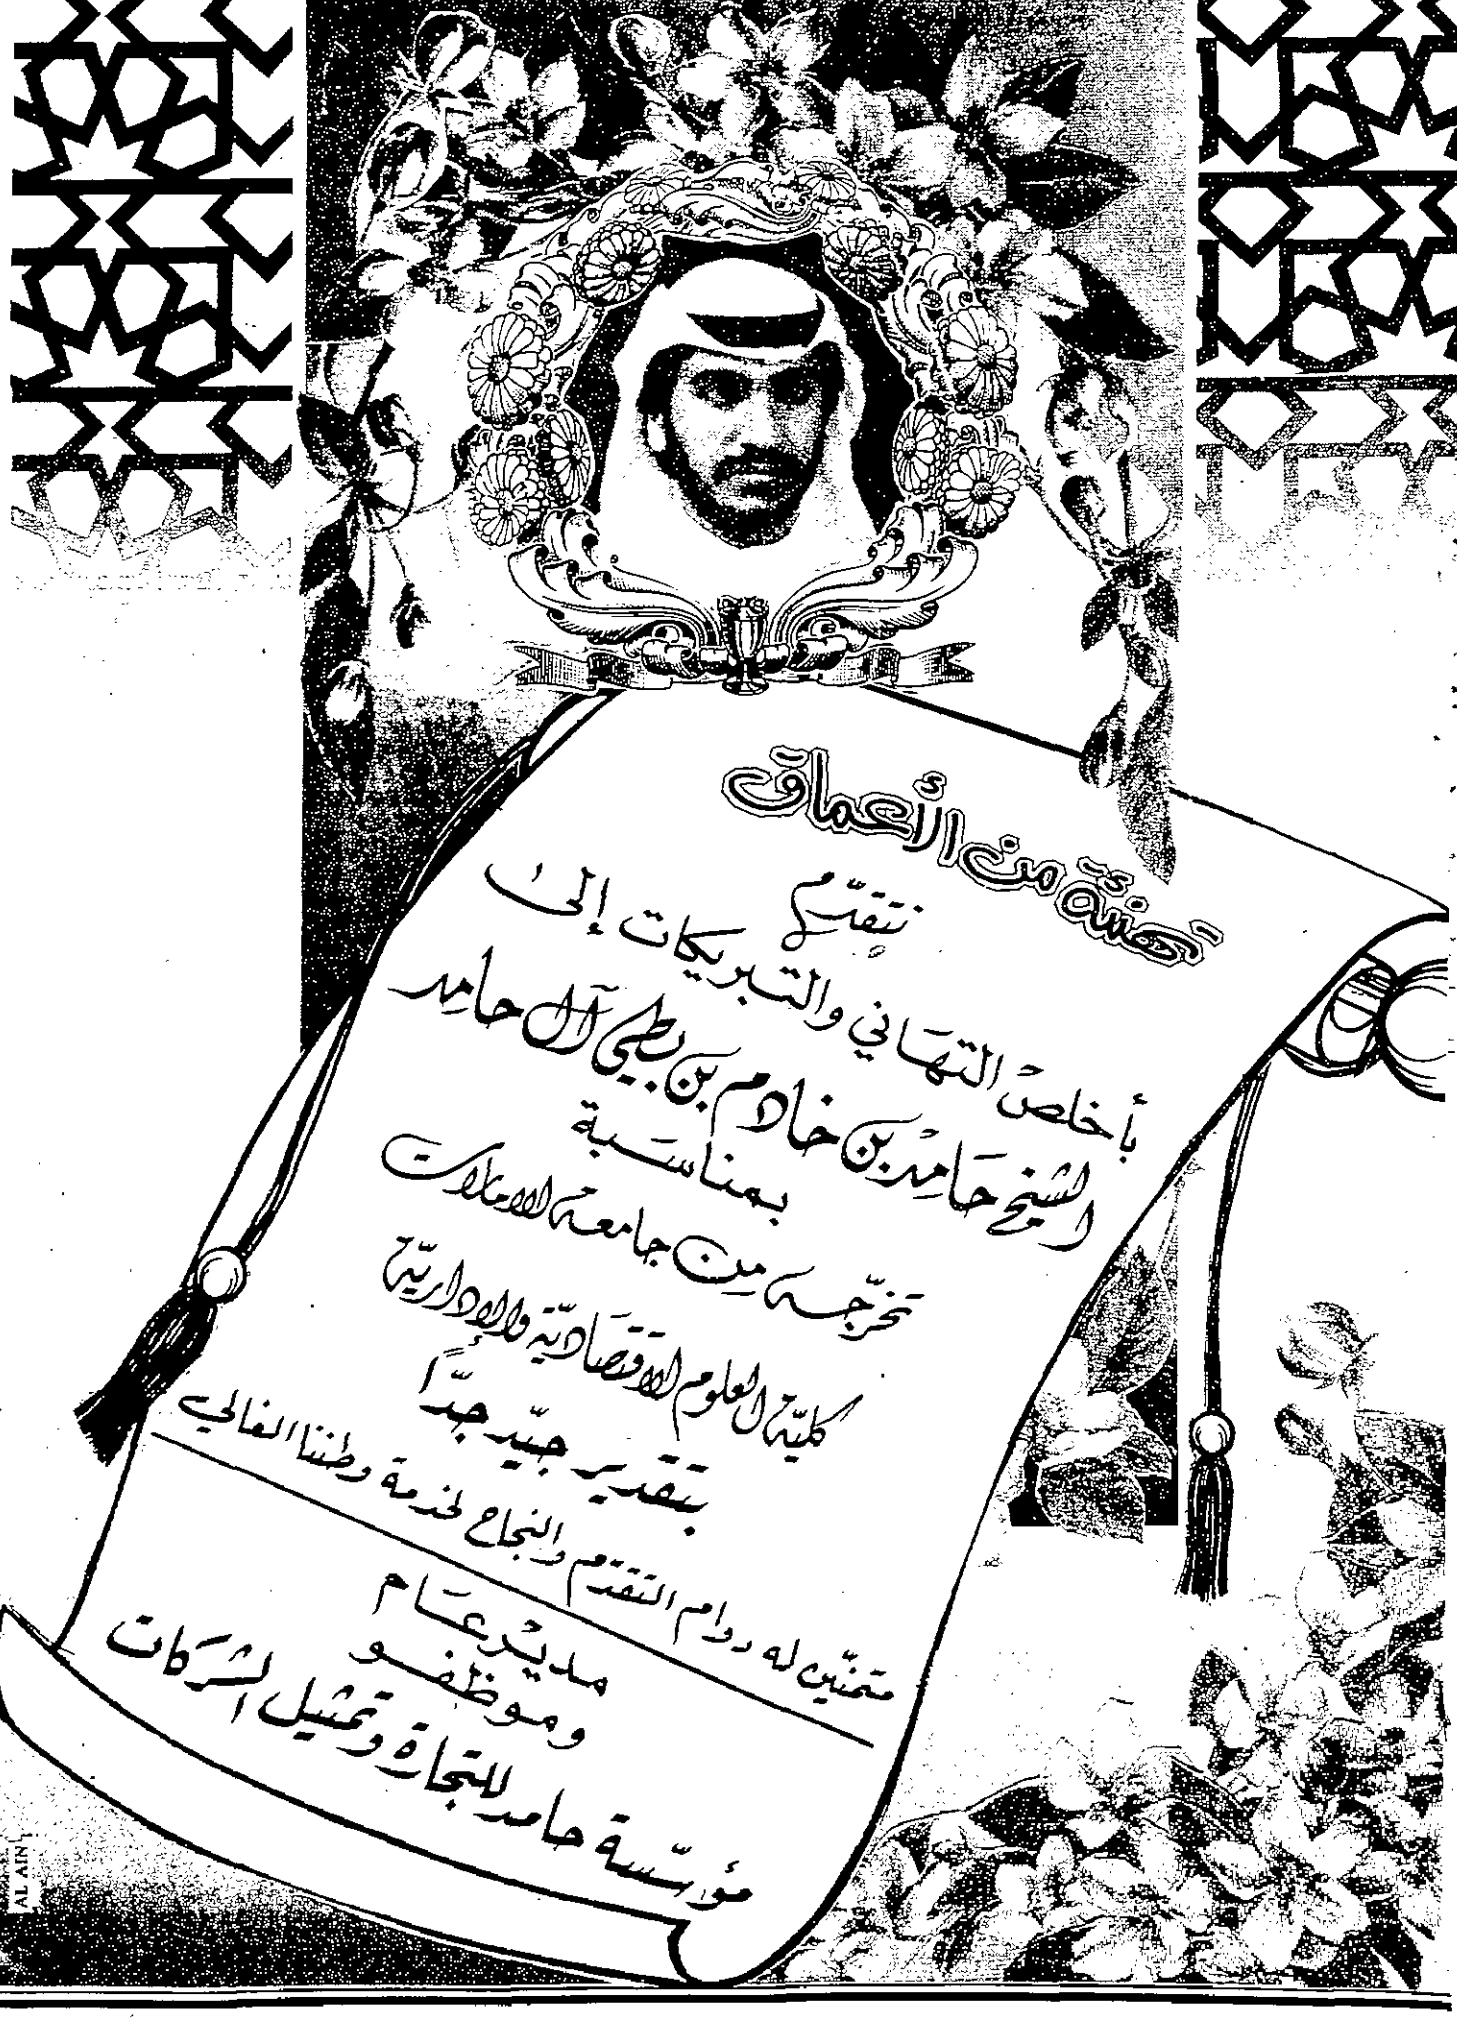 تهنئة من الأعماق
نتقدّم
بأخلص التهاني والتبريكات إلى
الشيخ حامد بن خادم بن بطي آل حامد
بمناسبة
تخرّجه من جامعة الامارات
كليّة العلوم الاقتصاديّة والإداريّة
بتقدير جيّد جدّاً
متمنّين له دوام التقدّم والنجاح لخدمة وطننا الغالي
مدير عام
وموظفو
مؤسّسة حامد للتجارة وتمثيل الشركات
AL AIN